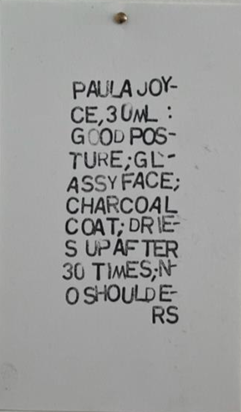 PAULA JOY-
CE, 30ML :
GOOD POS-
TURE; GL-
ASSY FACE;
CHARCOAL
COAT; DRIE-
S UP AFTER
30 TIMES; N-
O SHOULDE-
RS